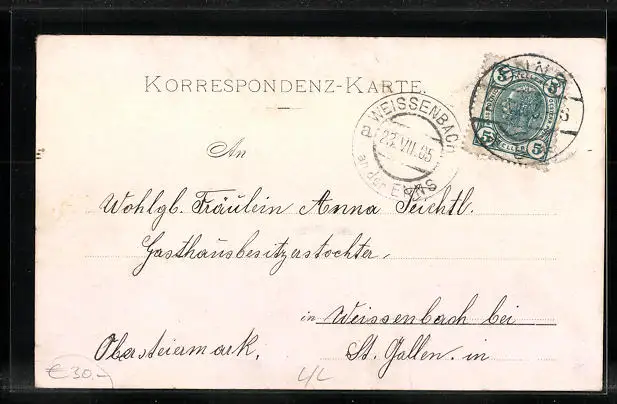 KORRESPONDENZ-KARTE.
WEISSENBACH
a
23.VII.05
an der ENNS
5 5
5 5
HELLER
An
Wohlgb. Fräulein Anna Teichtl.
Gasthausbesitzerstochter,
in Weissenbach bei
Obersteiermark. St. Gallen. in
€30,-